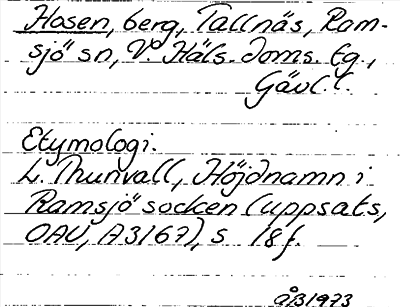 Hosen, berg, Tallnäs, Ram-
sjö sn, V. Häls. doms. tg.,
Gävl. l.
Etymologi.
L. Thunvall, Höjdnamn i
Ramsjö socken (uppsats,
OAU, A3167), s 18 f.
ÅB 1973